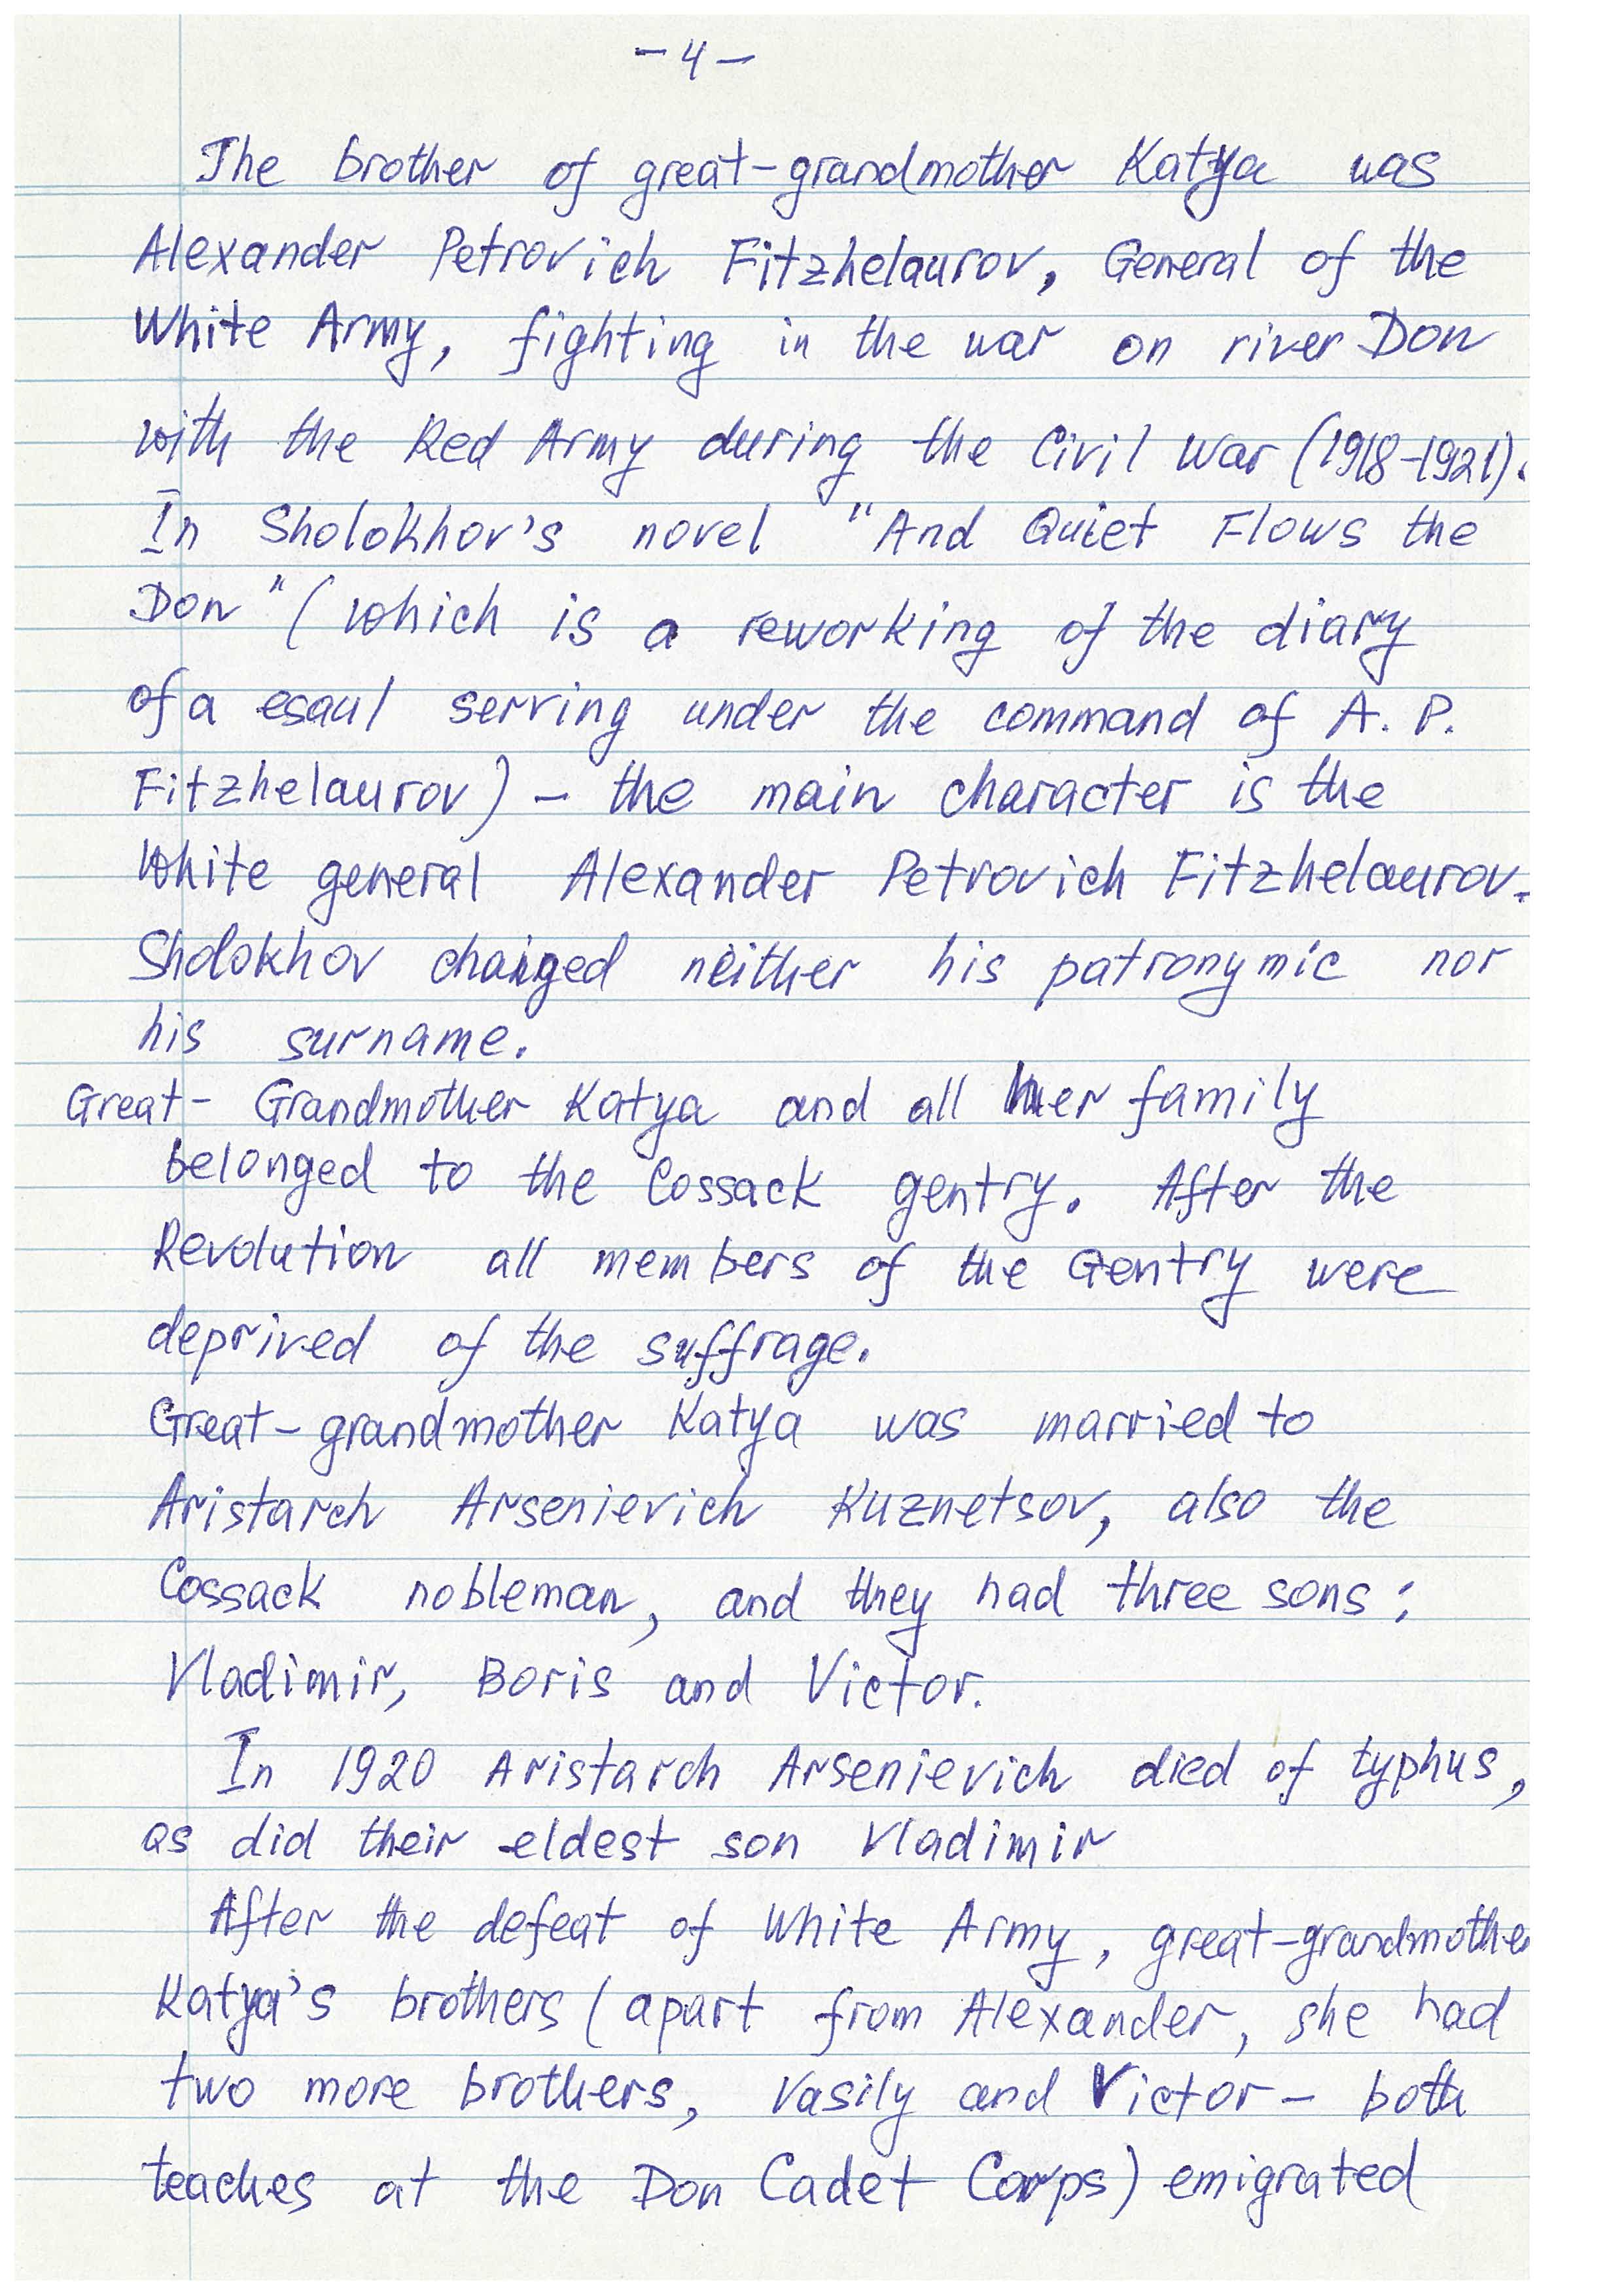 -4-
The brother of great-grandmother Katya was
Alexander Petrovich Fitzhelaurov, General of the
White Army, fighting in the war on river Don
with the Red Army during the Civil War (1918-1921).
In Sholokhov's novel "And Quiet Flows the
Don" (which is a reworking of the diary
of a esaul serving under the command of A. P.
Fitzhelaurov) – the main character is the
White general Alexander Petrovich Fitzhelaurov.
Sholokhov changed neither his patronymic nor
his surname.
Great- Grandmother Katya and all her family
belonged to the Cossack gentry. After the
Revolution all members of the Gentry were
deprived of the suffrage.
Great-grandmother Katya was married to
Aristarch Arsenievich Kuznetsov, also the
Cossack nobleman, and they had three sons:
Vladimir, Boris and Victor.
In 1920 Aristarch Arsenievich died of typhus,
as did their eldest son Vladimir
After the defeat of White Army, great-grandmothe
Katya's brothers (apart from Alexander, she had
two more brothers, Vasily and Victor – both
teaches at the Don Cadet Corps) emigrated